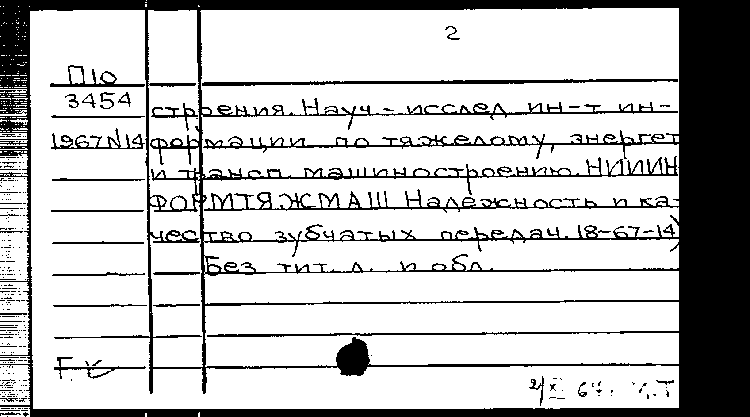 2
П10
3454
строения. Науч-исслед ин-т ин-
1967N14 формации по тяжелому, энергет
и трансп. машиностроению. НИИИН
ФОРМТЯЖМАШ Надежность и ка-
чество зубчатых передач. 18-67-14)
Без тит. л. и обл.
2/XI 67.